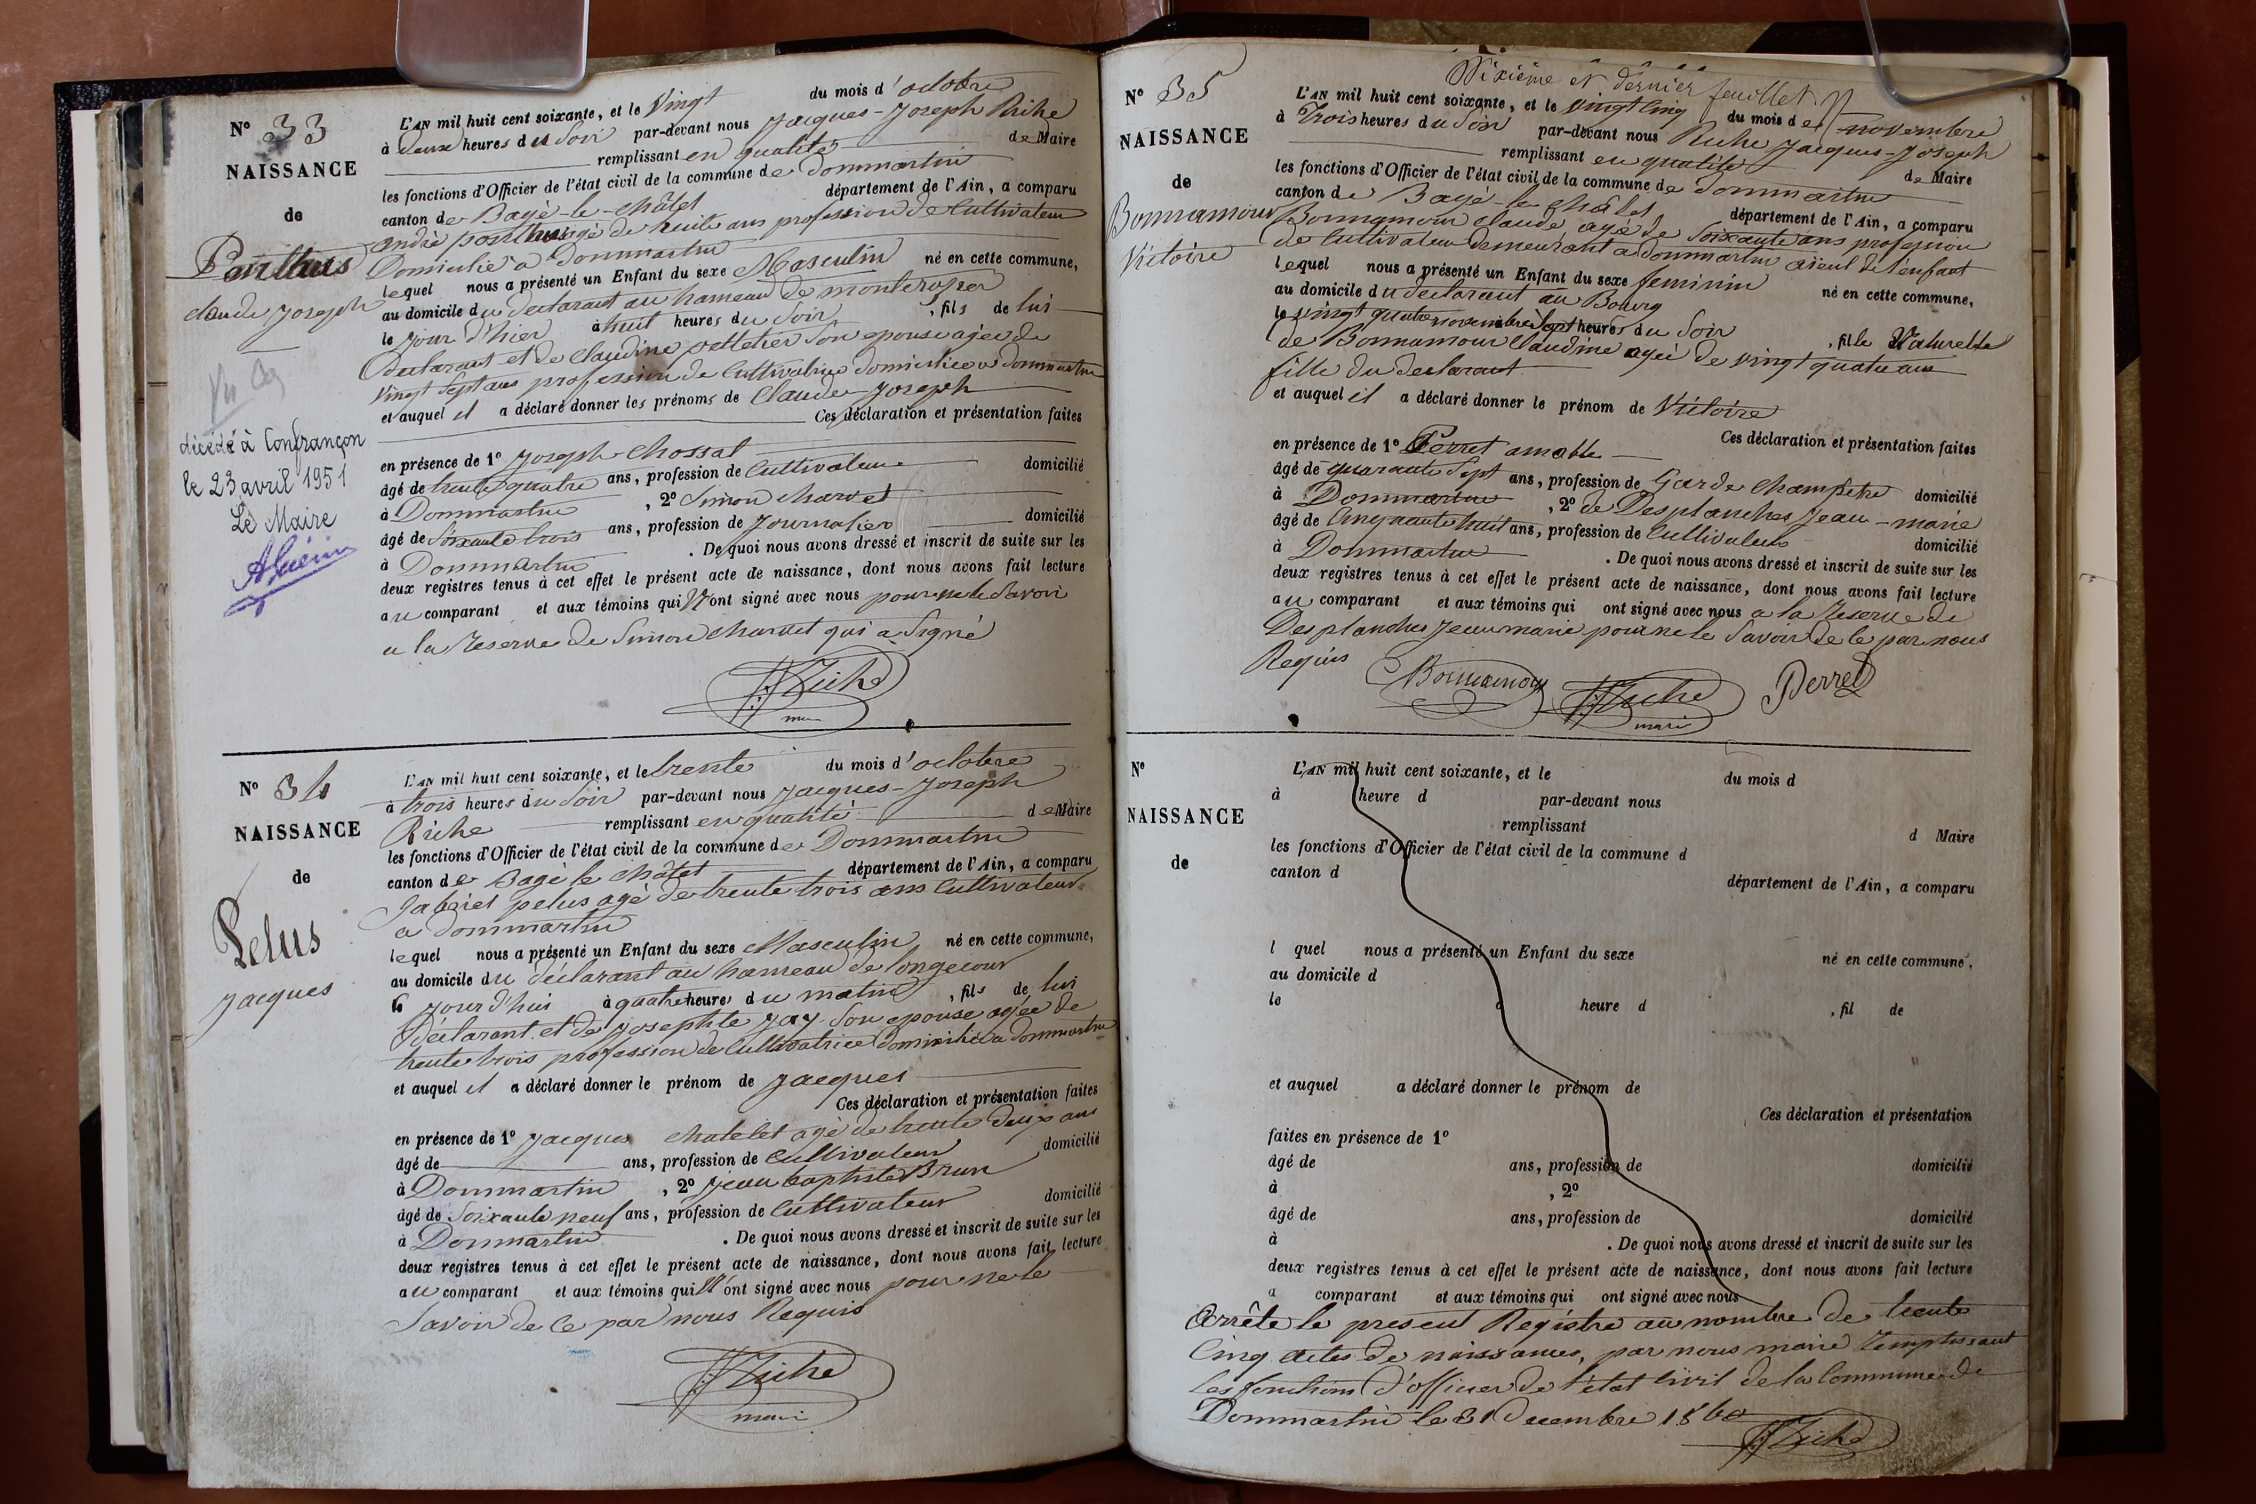 N° 33
NAISSANCE
de
Ponthus
claude Joseph
Vu
décédé à Confrançon
le 23 avril 1951
Le Maire
L'AN mil huit cent soixante, et le Vingt du mois d'octobre
à deux heures du Soir par-devant nous Jacques-Joseph Riche
remplissant en qualité de Maire
les fonctions d'Officier de l'état civil de la commune de Dommartin
canton de Bagé-le-châtel département de l'Ain, a comparu
andré ponthus agé de huite ans profession de Cultivateur
Domicilié a Dommartin
lequel nous a présenté un Enfant du sexe Masculin né en cette commune,
au domicile du declarant au hameau de
le jour d'hier à huit heures du Soir, fils de lui
declarant et de Claudine pelletier Son epouse agée de
Vingt Sept ans profession de Cultivatrice domiciliée a dommartin
et auquel il a déclaré donner les prénoms de Claude Joseph
Ces déclaration et présentation faites
en présence de 1° Joseph Chossat
âgé de trente quatre ans, profession de Cultivateur domicilié
à Dommartin, 2° Simon charvet
âgé de Soixante trois ans, profession de Journalier domicilié
à Dommartin. De quoi nous avons dressé et inscrit de suite sur les
deux registres tenus à cet effet le présent acte de naissance, dont nous avons fait lecture
au comparant et aux témoins qui N'ont signé avec nous pour ne le Savoir
a la Reserve de Simon charvet qui a Signé
Riche
N° 34
NAISSANCE
de
Pelus
Jacques
L'AN mil huit cent soixante, et le trente du mois d'octobre
à trois heures du Soir par-devant nous Jacques-Joseph
Riche remplissant en qualité de Maire
les fonctions d'Officier de l'état civil de la commune de Dommartin
canton de Bagé le châtel département de l'Ain, a comparu
Gabriel pelus agé de trente trois ans Cultivateur
a Dommartin
lequel nous a présenté un Enfant du sexe Masculin né en cette commune,
au domicile du déclarant au hameau de longecour
le jour d'hui à quatre heures du matin, fils de lui
déclarant et de Josephte Jay Son epouse agée de
trente trois profession de Cultivatrice Domiciliée a Dommartin
et auquel il a déclaré donner le prénom de Jacques
Ces déclaration et présentation faites
en présence de 1° Jacques chatelet agé de trente Deux ans
âgé de ans, profession de Cultivateur domicilié
à Dommartin, 2° Jean baptiste Brun
âgé de Soixante neuf ans, profession de Cultivateur domicilié
à Dommartin. De quoi nous avons dressé et inscrit de suite sur les
deux registres tenus à cet effet le présent acte de naissance, dont nous avons fait lecture
au comparant et aux témoins qui N'ont signé avec nous pour ne le
Savoir de Ce par nous Requis
Riche
maire
Sixième et dernier feuillet
N° 35
NAISSANCE
de
Bonnamour
Victoire
L'AN mil huit cent soixante, et le Vingt Cinq du mois de novembre
à Trois heures du Soir par-devant nous Riche Jacques-Joseph
remplissant en qualité de Maire
les fonctions d'Officier de l'état civil de la commune de Dommartin
canton de Bagé le châtel département de l'Ain, a comparu
Bonnamour Claude agé de Soixante ans profession
de Cultivateur demeurant a Dommartin aieul de l'enfant
lequel nous a présenté un Enfant du sexe feminin né en cette commune,
au domicile du declarant au Bourg
le Vingt quatre novembre à Sept heures du Soir, fille Naturelle
de Bonnamour Claudine agée de Vingt quatre ans
fille du declarant
et auquel il a déclaré donner le prénom de Victoire
Ces déclaration et présentation faites
en présence de 1° Perret amable
âgé de quarante Sept ans, profession de Garde Champêtre domicilié
à Dommartin, 2° de Desplanches Jean-marie
âgé de Cinquante huit ans, profession de Cultivateur domicilié
à Dommartin. De quoi nous avons dressé et inscrit de suite sur les
deux registres tenus à cet effet le présent acte de naissance, dont nous avons fait lecture
au comparant et aux témoins qui ont signé avec nous a la Reserve de
Desplanches Jean marie pour ne le Savoir de Ce par nous
Requis
Bonnamour Riche Perret
maire
N°
NAISSANCE
de
L'AN mil huit cent soixante, et le du mois d
à heure d par-devant nous
remplissant d Maire
les fonctions d'Officier de l'état civil de la commune d
canton d département de l'Ain, a comparu
l quel nous a présenté un Enfant du sexe né en cette commune,
au domicile d
le à heure d, fil de
et auquel a déclaré donner le prénom de
Ces déclaration et présentation
faites en présence de 1°
âgé de ans, profession de domicilié
à, 2°
âgé de ans, profession de domicilié
à. De quoi nous avons dressé et inscrit de suite sur les
deux registres tenus à cet effet le présent acte de naissance, dont nous avons fait lecture
a comparant et aux témoins qui ont signé avec nous
Arrêté le present Registre au nombre de trente
Cinq actes de naissances, par nous maire remplissant
les fonctions d'officier de l'état Civil de la Commune de
Dommartin le 31 Decembre 1860
Riche